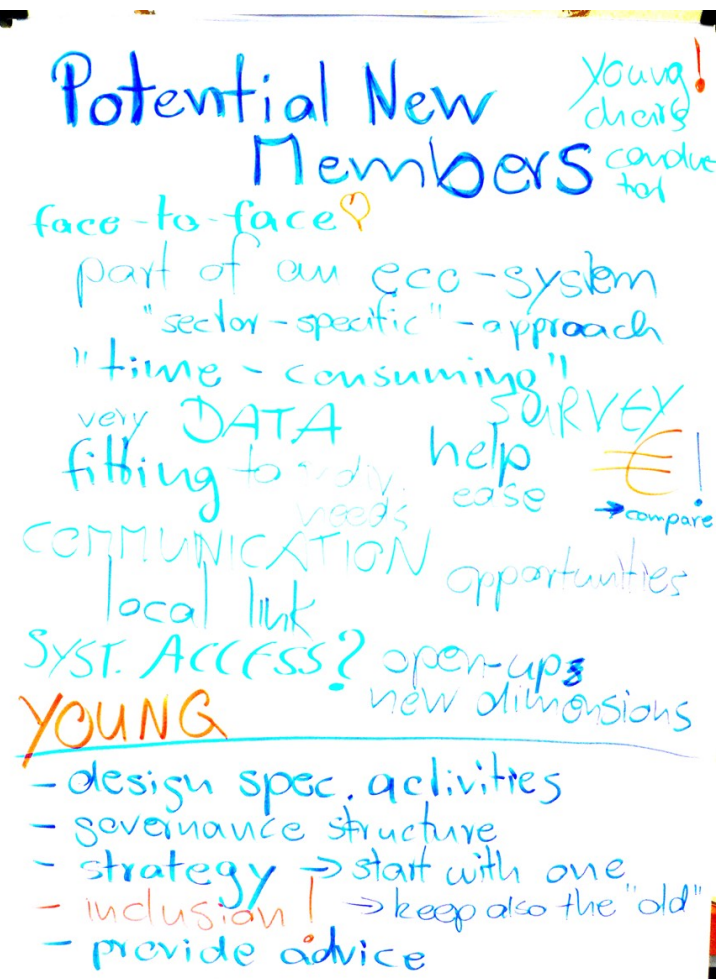 Potential New
Members
Young!
choirs
conduc
tor
face-to-face
part of an eco-system
"sector-specific"-approach
"time-consuming"
very DATA
SURVEY
fitting to indiv.
needs
help
ease
€!
→compare
COMMUNICATION
opportunities
local link
SYST. ACCESS?
open-ups
new dimensions
YOUNG
- design spec. activities
- governance structure
- strategy → start with one
- inclusion! → keep also the "old"
- provide advice